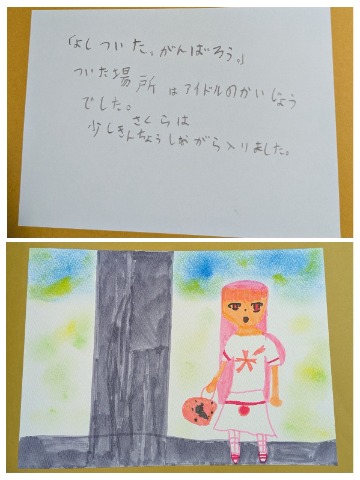 「よしついた。がんばろう。」
ついた場所はアイドルのかいじょう
でした。
さくらは
少しきんちょうしながら入りました。